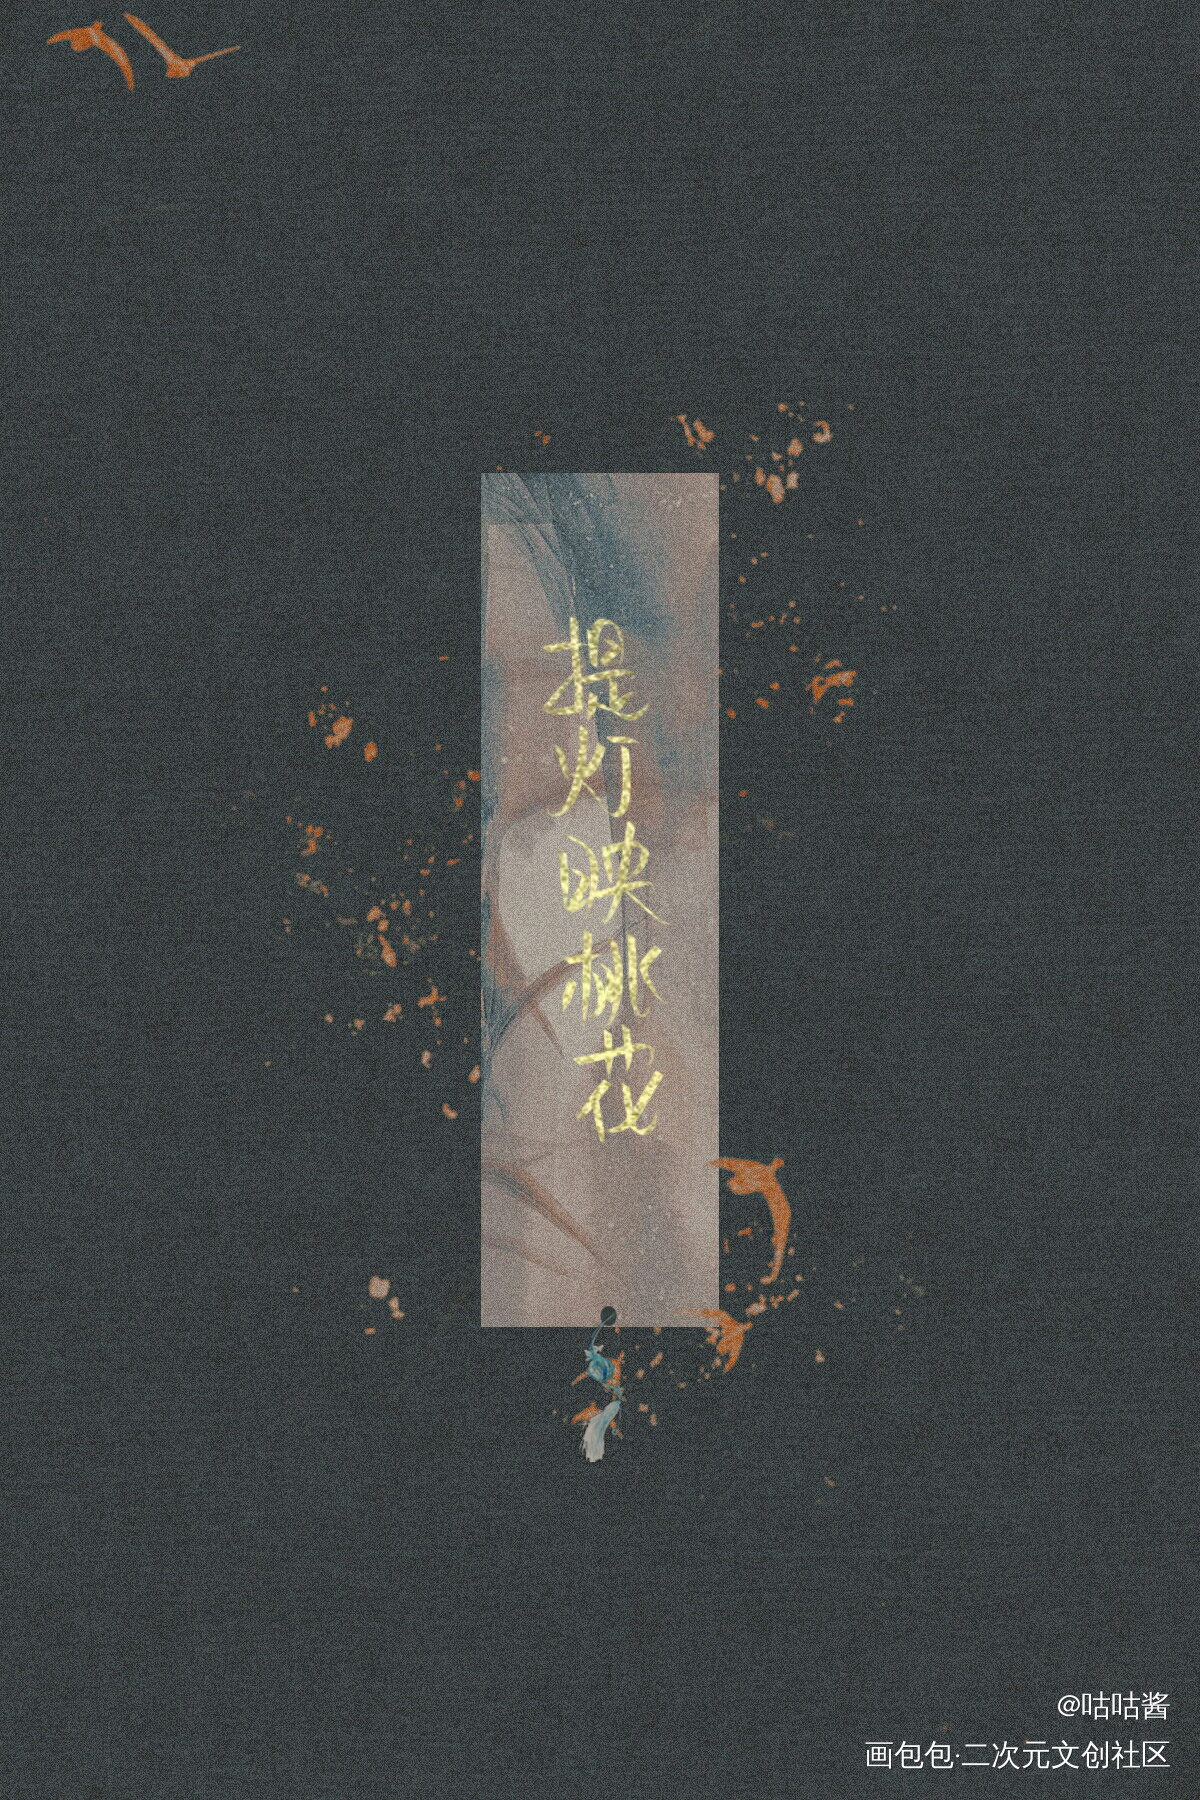 提灯映桃花
@咕咕酱
画包包·二次元文创社区